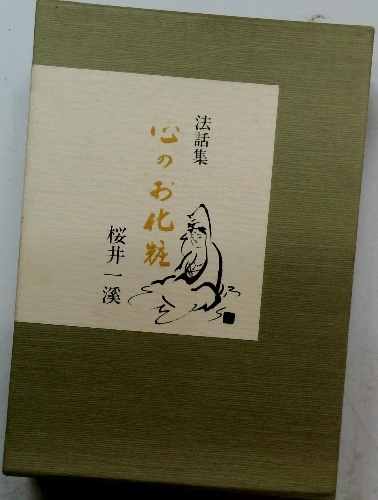 法話集
心のお化粧
桜井一溪